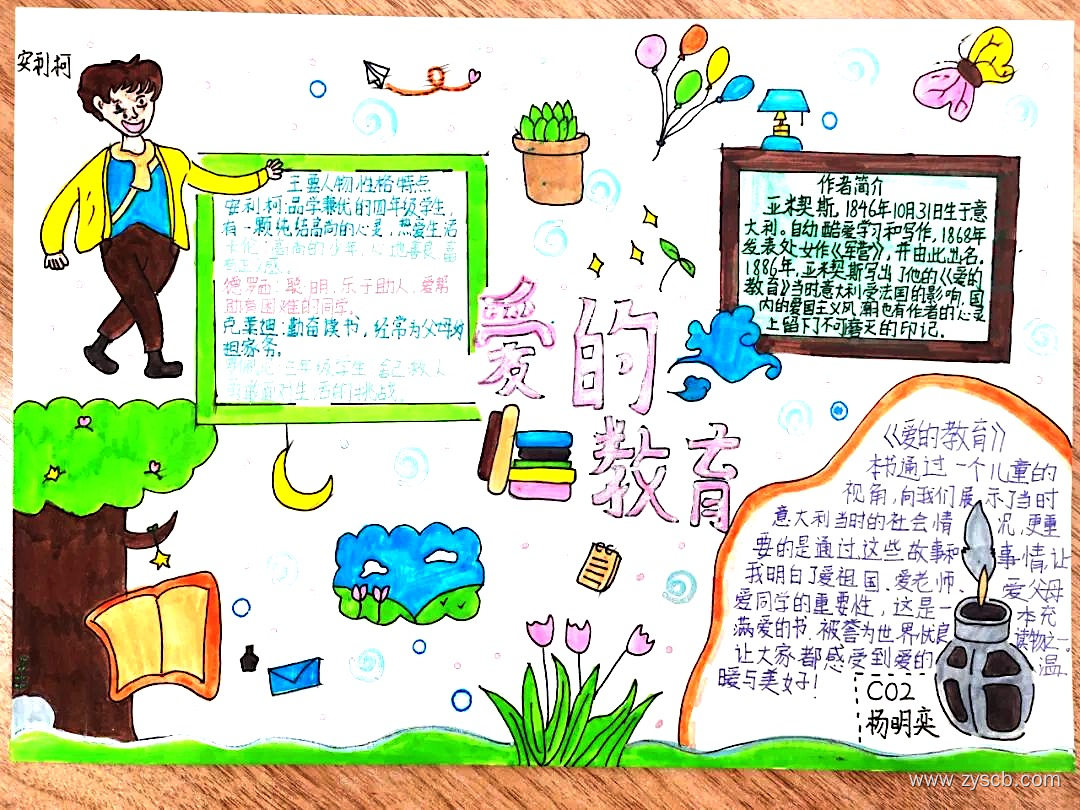 安利柯
主要人物性格特点
安利柯:品学兼优的四年级学生,
有一颗纯洁高尚的心灵,热爱生活
高尚的少年,
德罗西:聪明,乐于助人,爱帮
助有困难的同学。
克莱迪:勤奋读书,经常为父母分
担家务。
三年级学生
对生活的挑战。
作者简介
亚米契斯,1846年10月31日生于意
大利。自幼酷爱学习和写作,1868年
发表处女作《军营》,并由此出名。
1886年,亚米契斯写出了他的《爱的
教育》当时意大利受法国的影响,国
内的爱国主义风潮也有作者的心灵
上留下不可磨灭的印记。
爱的
教育
《爱的教育》
本书通过一个儿童的
视角,向我们展示了当时
意大利当时的社会情况,更重
要的是通过这些故事和事情,让
我明白了爱祖国、爱老师、爱父母
爱同学的重要性,这是一本充
满爱的书,被誉为世界优良读物之一。
让大家都感受到爱的温
暖与美好!
C02
杨明奕
www.zyscb.com